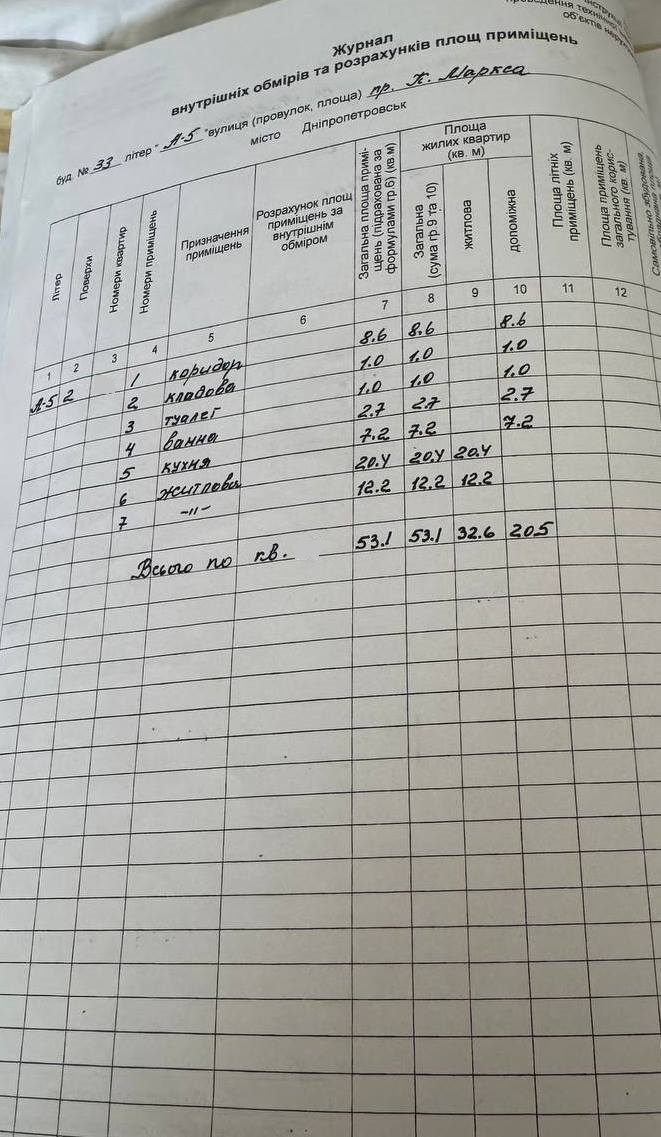 проведення технічної
об'єктів
Журнал
внутрішніх обмірів та розрахунків площ приміщень
буд. № 33 літер "А-5" вулиця (провулок, площа) пр. К. Маркса
місто Дніпропетровськ
Літер
Поверхи
Номери квартир
Номери приміщень
Призначення приміщень
Розрахунок площ приміщень за внутрішнім обміром
Загальна площа приміщень (підрахована за формулами гр.6) (кв.м)
Площа жилих квартир (кв. м)
Загальна (сума гр 9 та 10)
житлова
допоміжна
Площа літніх приміщень (кв. м)
Площа приміщень загального користування (кв. м)
Самовільно збудована
1 2 3 4 5 6 7 8 9 10 11 12
А-5 2 1 коридор 8.6 8.6 8.6
2 кладова 1.0 1.0 1.0
3 туалет 1.0 1.0 1.0
4 ванна 2.7 2.7 2.7
5 кухня 7.2 7.2 7.2
6 житлова 20.4 20.4 20.4
7 -"- 12.2 12.2 12.2
Всього по кв. 53.1 53.1 32.6 20.5